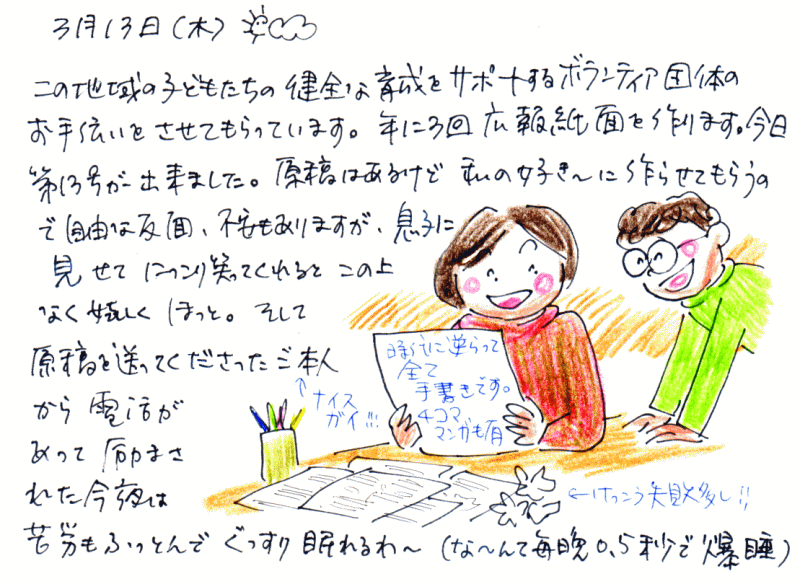 3月13日(木)
この地域の子どもたちの健全な育成をサポートするボランティア団体の
お手伝いをさせてもらっています。年に3回広報紙面を作ります。今日
第13号が出来ました。原稿はあるけど私の好き〜に作らせてもらうの
で自由な反面、不安もありますが、息子に
見せてにっこり笑ってくれるとこの上
なく嬉しくほっと。そして
原稿を送ってくださったご本人
から電話が
あって励まさ
れた今夜は
苦労もふっとんでぐっすり眠れるわ〜(な〜んて毎晩0.5秒で爆睡)
時代に逆らって
全て
手書きです。
4コマ
マンガも有
↑ナイス
ガイ!!!
←けっこう失敗多し!!